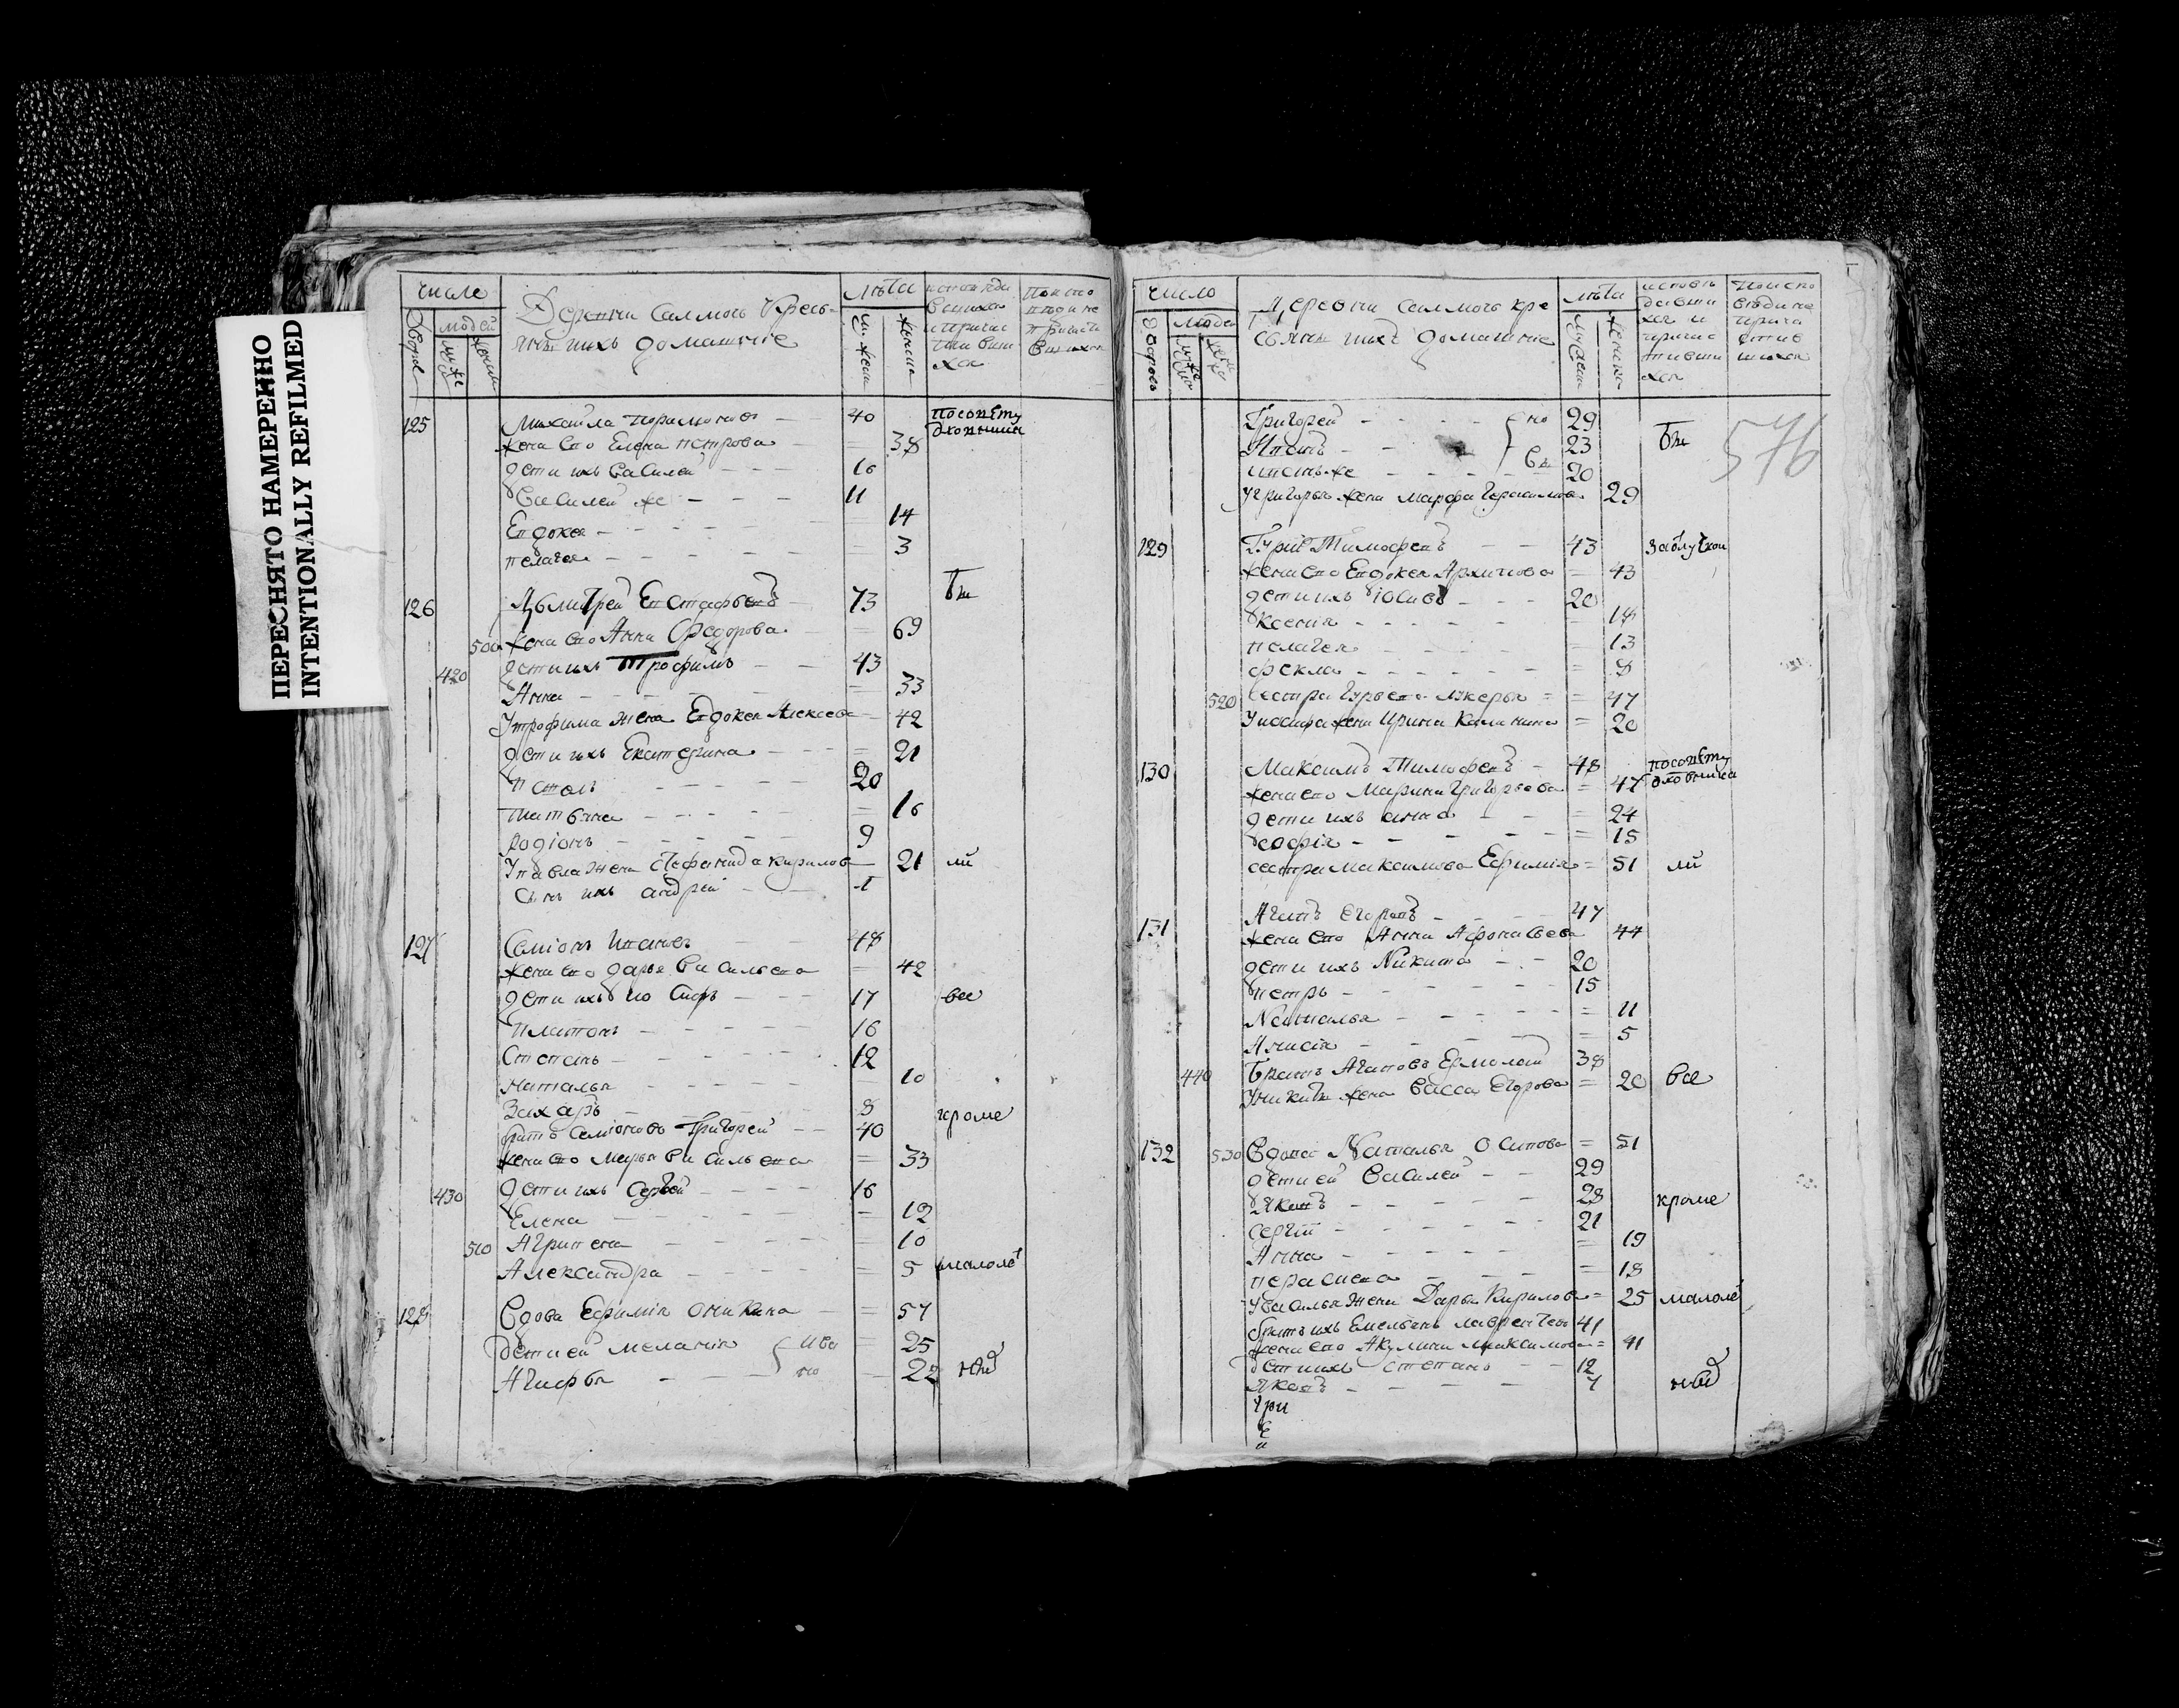 ПЕРЕСНЯТО НАМЕРЕННО
INTENTIONALLY REFILMED
числе
людей
лѣта
домашние
125 40 по совѣту
жена его Елена Петрова 38 духовника
дети ихъ Василей 16
Василей же 11
Евдокея 14
Пелагея 3
126 Дьмитрей Евстафьевъ 73
500 жена его Анна Федорова 69
420 дети ихъ Трофимъ 43
Анна 33
У трофима жена Евдокея Алексеева 42
дети ихъ Екатерина 21
Павелъ 20
Татьяна 16
Родіонъ 9
У павла жена Кирилова 21 ли
Сынъ ихъ андрей 1
127 Семіонъ Ивановъ 48
жена его дарья Васильева 42
дети ихъ Іосифъ 17 все
Платонъ 16
Степанъ 12
Наталья 10
Захаръ 8 кроме
братъ Семіоновъ Григорей 40
жена его Марья Васильева 33
430 дети ихъ Сергей 16
Елена 12
510 Агрипена 10
Александра 5 малолѣ
128 Вдова Ефимія 57
дети ей Меланія 25
Агафья 22
число
людей
Деревни кре
сьяне ихъ домашние
лѣта
576
Григорей 29
Иванъ 23
иванъ же 20
У григорья жена марфа Герасимова 29
129 Гурій Тимофеевъ 43 за отлучкои
жена его Евдокея Архипова 43
дети ихъ Іосивъ 20
Ксенія 18
пелагея 13
фекла 8
520 Сестра Гурьева Лукерья 47
У иосифа жена Ирина Калинина 20
130 Максимъ Тимофеевъ 48 по совѣту
жена его Марина Григорьева 47 духовника
дети ихъ анна 24
софія 15
сестра максимова Ефимія 51 ли
131 Агапъ Егоровъ 47
жена его Анна Афонасьева 44
дети ихъ Никита 20
петръ 15
Наталья 11
Анисія 5
440 Братъ Агаповъ Ермолай 38
У никиты жена Васса Егорова 20 все
132 530 Вдова Наталья Осипова 51
дети ей Василей 29
Яковъ 28 кроме
Сергій 21
Анна 19
18
У василья жена Дарья Кирилова 25 малолѣ
братъ ихъ Емельянъ 41
жена его Акулина Максимова 41
дети ихъ степанъ 12
Яковъ 7